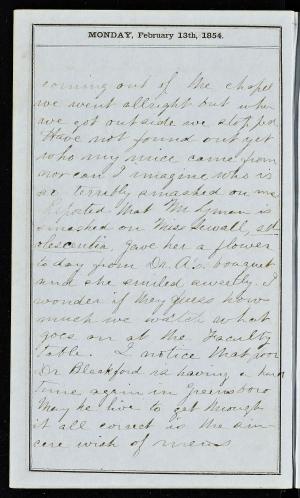 MONDAY, February 13th, 1854.
coming out of the chapel
we went allright but when
we got outside we stopped
Have not found out yet
who my mice came from
nor can I imagine who is
so terribly smashed on me
Reported that Mr Lyman is
smashed on Miss Sewall,
Gave her a flower
today from Dr. A.s. bouquet
and she smiled sweetly. I
wonder if they guess how
much we watch what
goes on at the Faculty
table. I notice that poor
Dr Blackford is having a hard
time again in Greensboro
May he live to get through
it all correct is the sin-
cere wish of